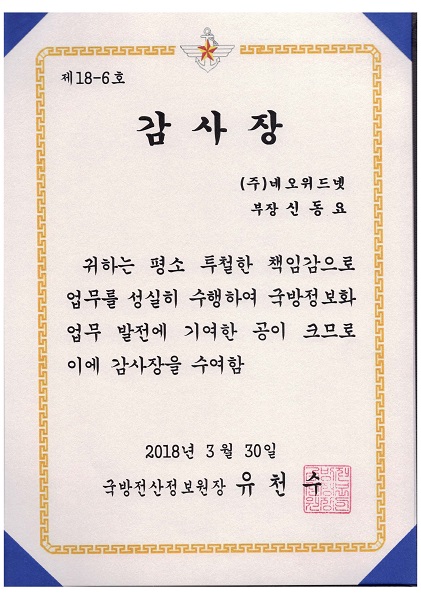 제18-6호
감 사 장
(주)네오위드넷
부장 신 동 요
귀하는 평소 투철한 책임감으로
업무를 성실히 수행하여 국방정보화
업무 발전에 기여한 공이 크므로
이에 감사장을 수여함
2018년 3월 30일
국방전산정보원장 유 천 수